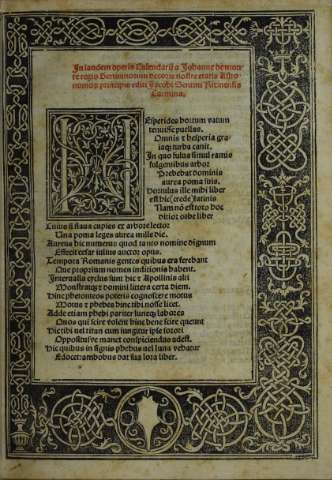 In laudem operis Calendarij a Johanne de mon
te regio Germanorum decoris nostre etatis Astro
nomorum principis editi Jacobi Sentini Ricinensis
Carmina.
Hesperidos hortum vatum
tenuisse puellas.
Omnis et hesperia gra
iaq; turba canit.
In quo fuluus simul ramis
fulgentibus arbor
Prebebat dominis
aurea poma suis.
Hortulus ille mihi liber
est hic (crede) latinis
Nam nō est toto hoc
ditior orbe liber
Cuius si flauos cupies ex arbore lector
Una poma leges aurea mille die.
Aureus hic numerus quod tanto nomine dignum
Effecit cesar iulius auctor opus.
Tempora Romanis gentes quibus era ferebant
Que proprium nomen indictionis habent.
Interualla cyclus sunt hic et Apollinis alti
Monstranq; et domini littera certa diem.
Hinc phetonteos poteris cognoscere motus
Motus et phebes hinc tibi nosse licet.
Adde etiam phebi pariter luneq; labores
Quos qui scire volent hinc bene scire queunt
Vectibi vel titan cum iungitur ipse sorori
Oppositusve manet conspiciendus adest.
Hic quibus in signis phebus vel luna vehatur
Edocet: ambobus dat sua iura liber.